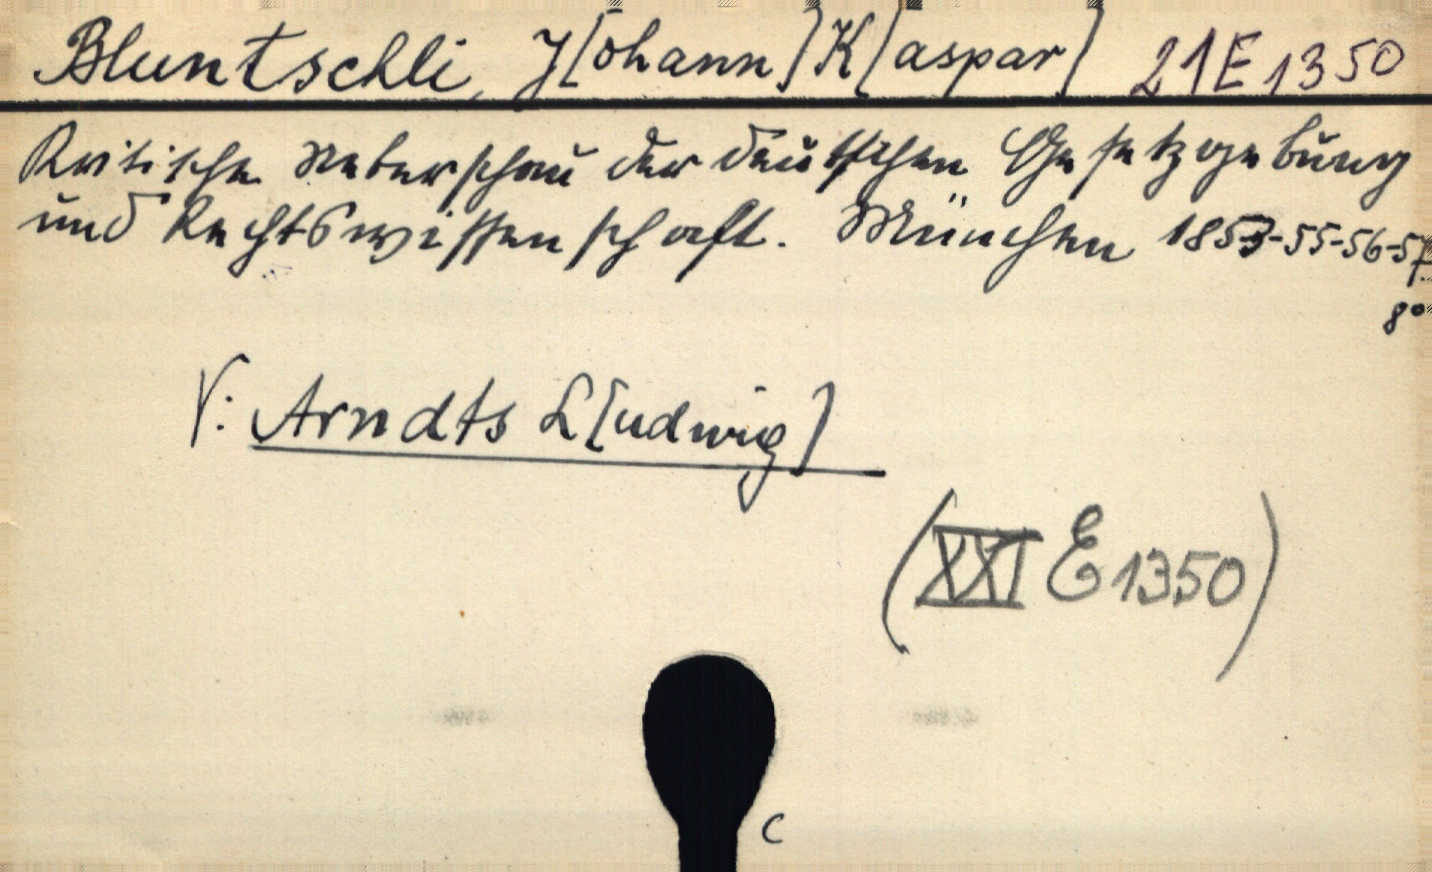 Bluntschli, J[ohann] K[aspar] 21E1350
Kritische Ueberschau der deutschen Gesetzgebung
und Rechtswissenschaft. München 1853-55-56-57.
8°
V: Arndts L[udwig]
(XXI E 1350)
C